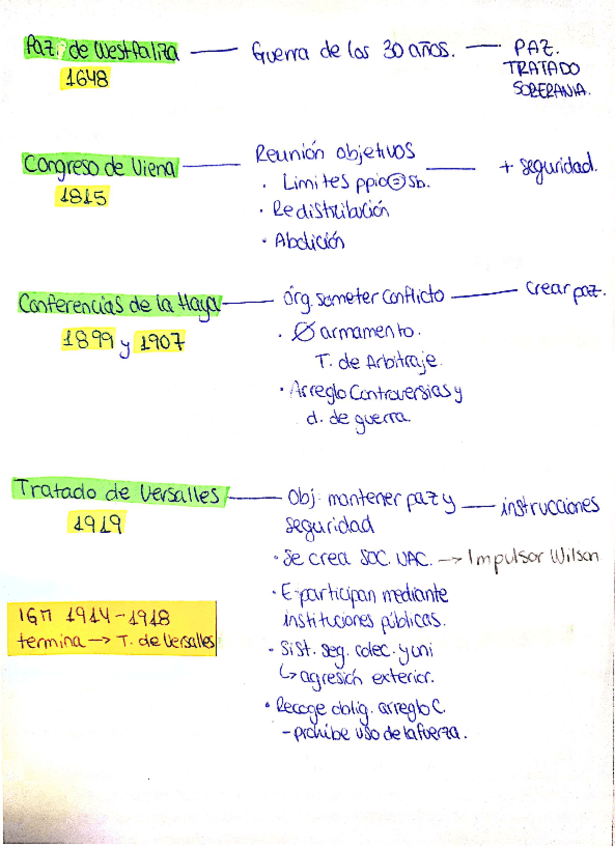 Paz de Westfalia — Guerra de los 30 años. — PAZ.
1648
TRATADO
SOBERANIA.
Congreso de Viena — Reunión objetivos — + seguridad.
1815
· Limites ppio = sb.
· Redistribución
· Abolición
Conferencias de la Haya — órg. someter conflicto — crear paz.
1899 y 1907
· Ø armamento.
T. de Arbitraje.
· Arreglo Controversias y
d. de guerra.
Tratado de Versalles — Obj. mantener paz y — instrucciones
1919
seguridad
· Se crea SOC. NAC. → Impulsor Wilson
· E participan mediante
instituciones públicas.
· Sist. seg. colec. y uni
↳ agresión exterior.
· Recoge oblig. arreglo C.
- prohibe uso de la fuerza.
IGM 1914-1918
termina → T. de Versalles